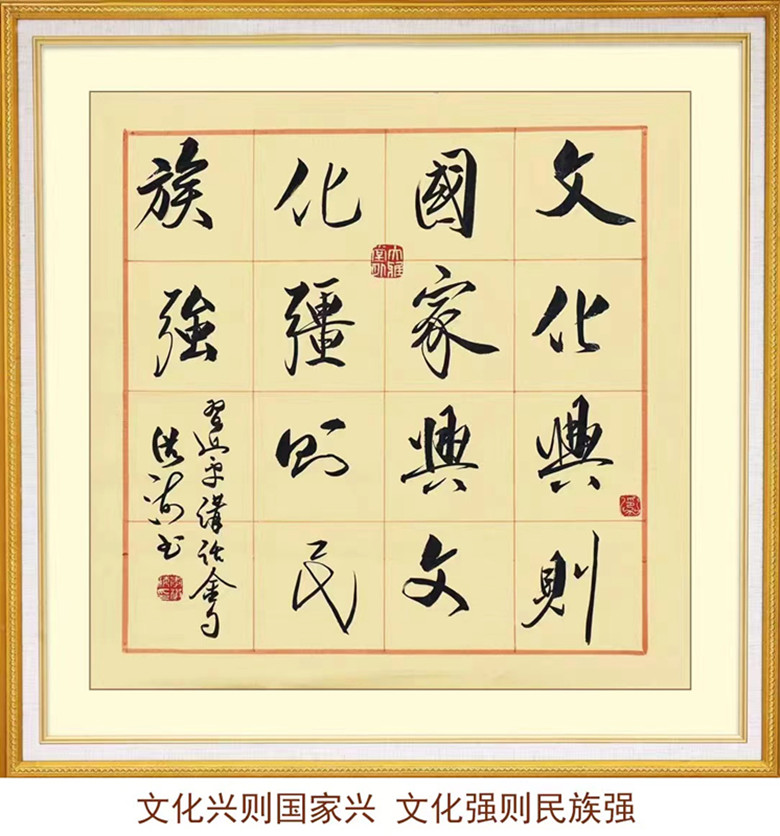 文化興則
國家興文
化彊则民
族強
習近平講話金句
洪 书
文化兴则国家兴 文化强则民族强